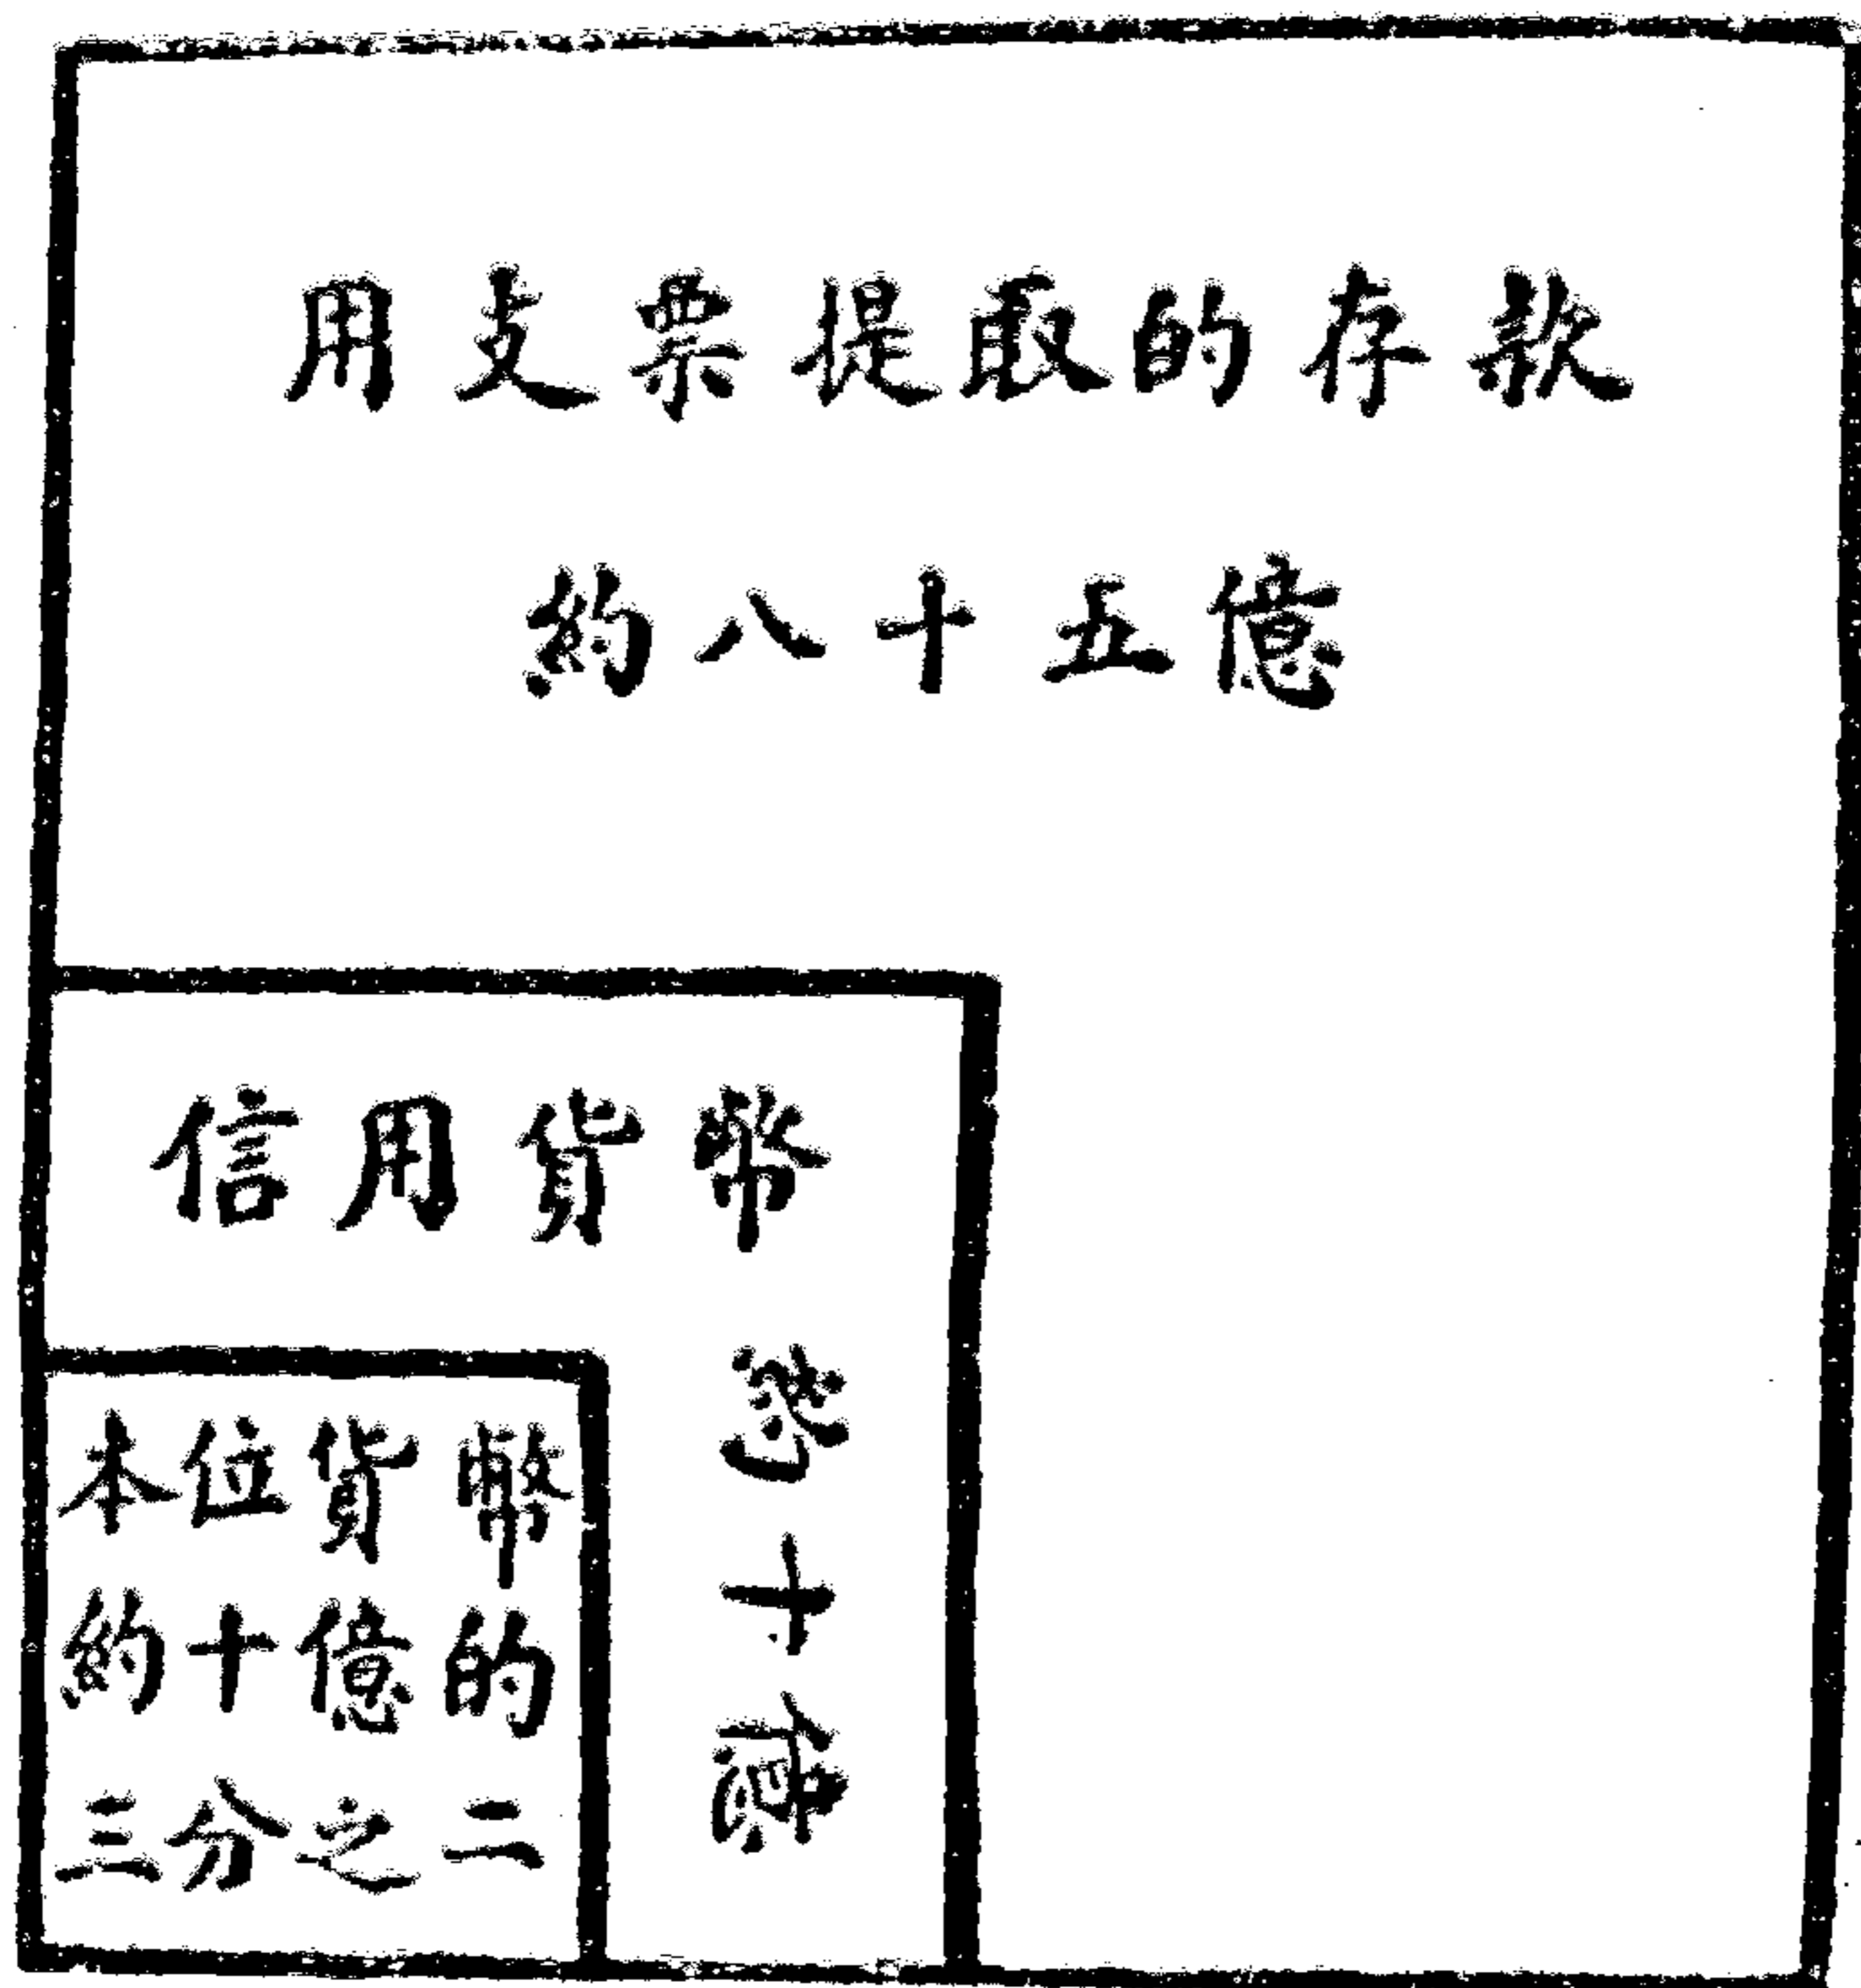 用支票提取的存款
約八十五億
信用貨幣
約十億
本位貨幣
約十億的
三分之二